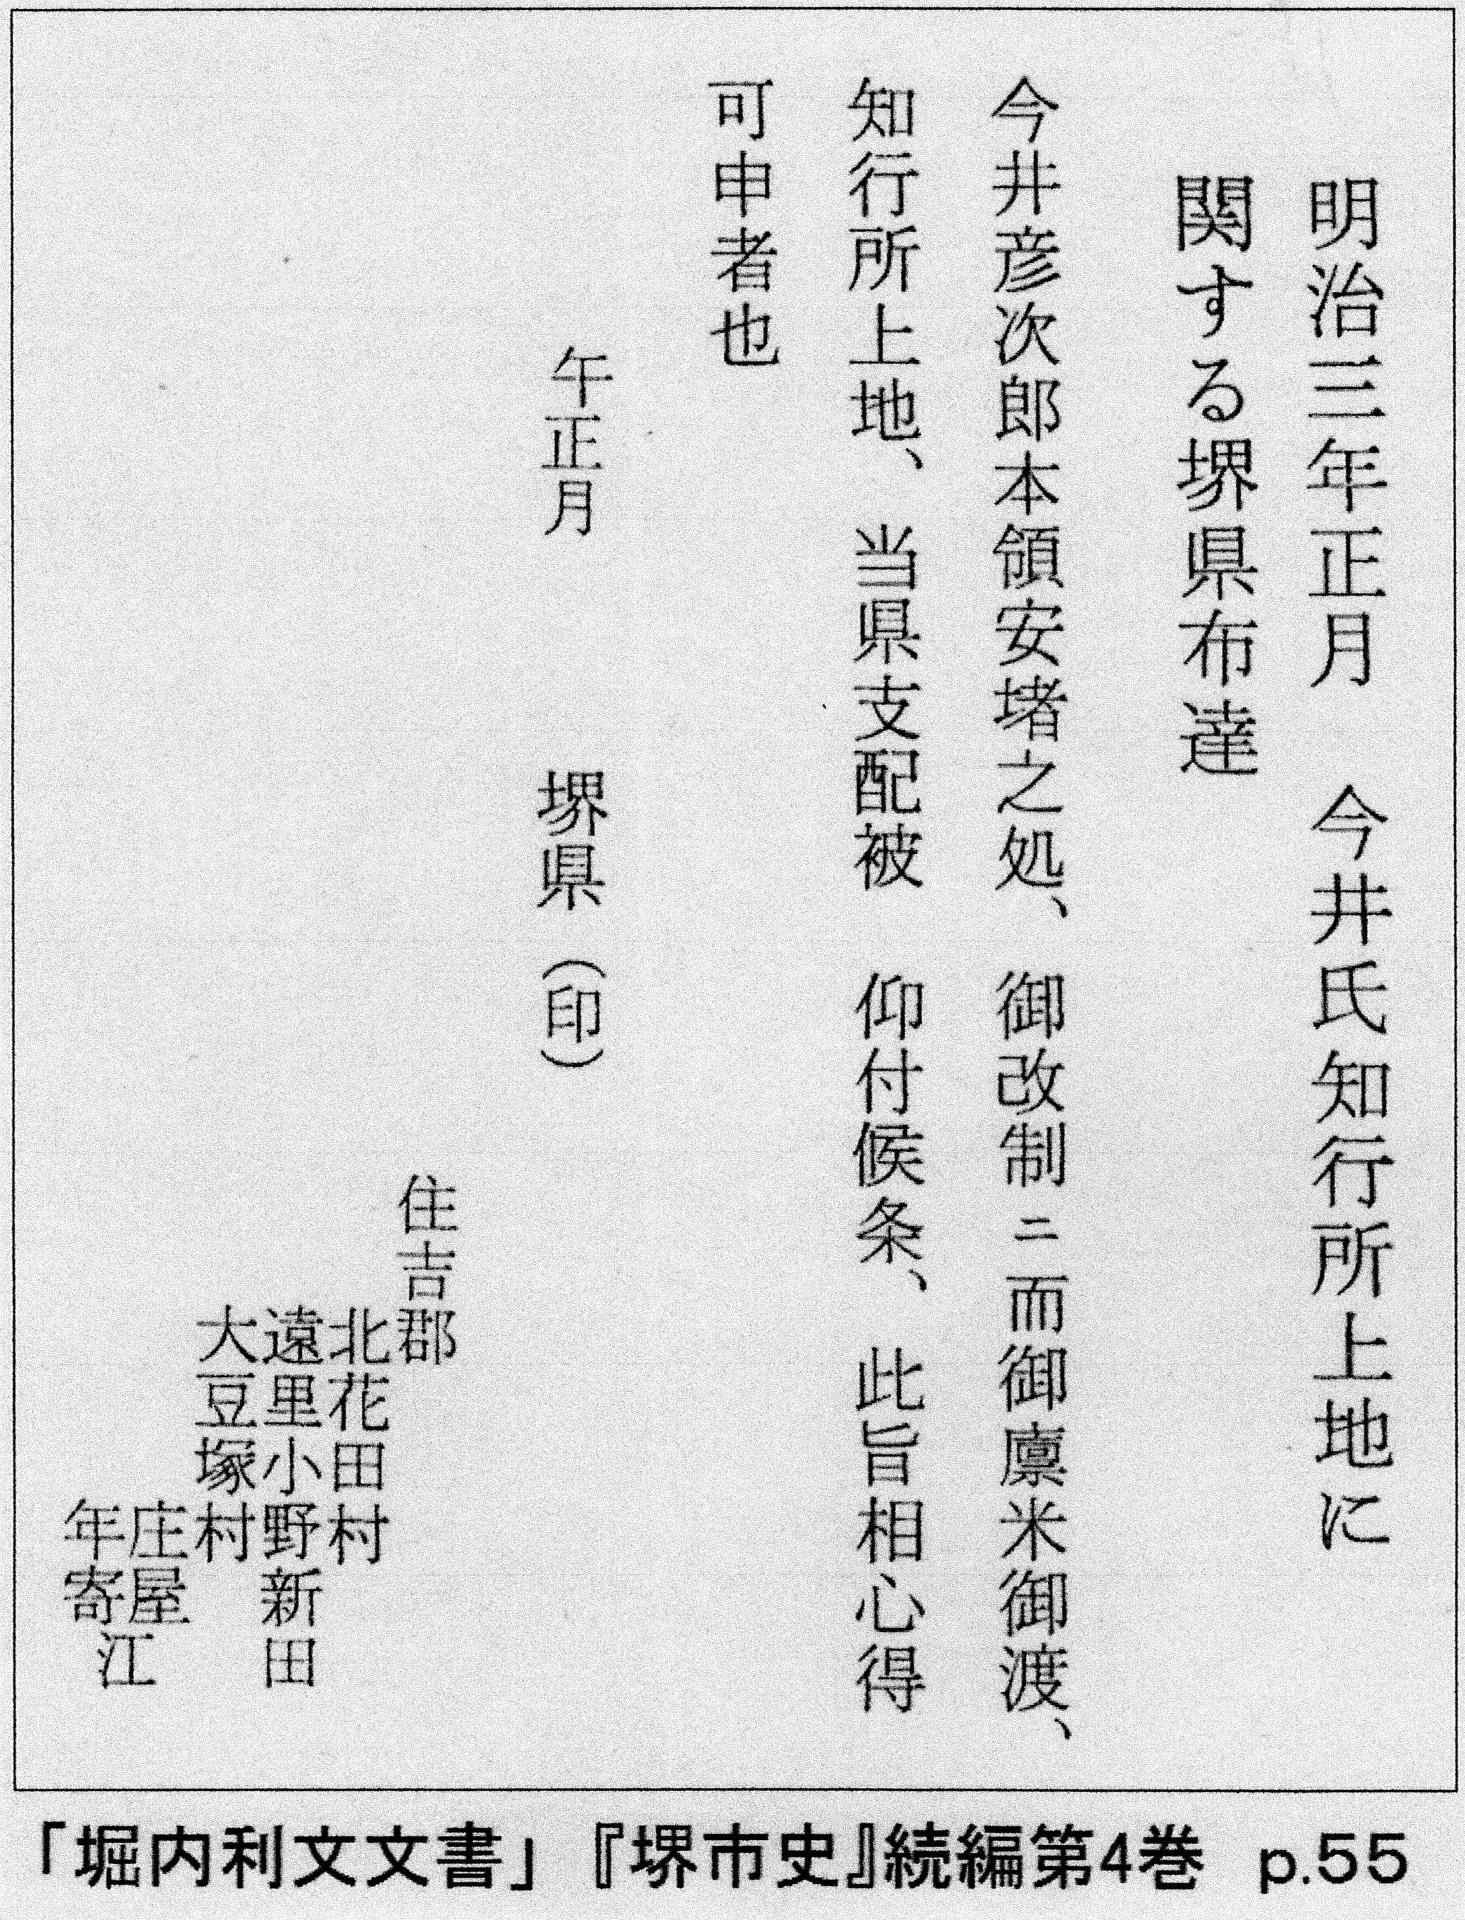 明治三年正月　今井氏知行所上地に
関する堺県布達
今井彦次郎本領安堵之処、御改制ニ而御廩米御渡、
知行所上地、当県支配被　仰付候条、此旨相心得
可申者也
午正月
堺県（印）
住吉郡
北花田村
遠里小野新田
大豆塚村
庄屋
年寄
江
「堀内利文文書」『堺市史』続編第4巻　p.55